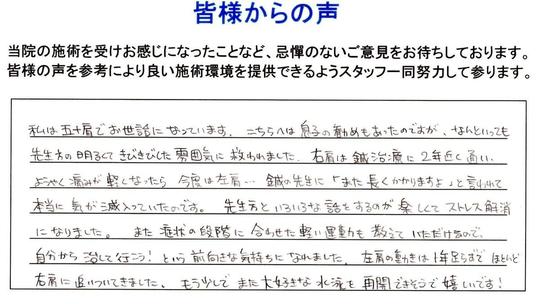 皆様からの声
当院の施術を受けお感じになったことなど、忌憚のないご意見をお待ちしております。
皆様の声を参考により良い施術環境を提供できるようスタッフ一同努力して参ります。
私は五十肩でお世話になっています. こちらへは息子の勧めもあったのですが、なんといっても
先生方の明るくてきびきびした雰囲気に救われました. 右肩は鍼治療に2年近く通い、
ようやく痛みが軽くなったら 今度は左肩… 鍼の先生に「また長くかかりますよ」と言われて
本当に気が滅入っていたのです。 先生方といろいろな話をするのが楽しくてストレス解消
になりました. また症状の段階に合わせた軽い運動も教えていただけるので、
自分から治して行こう!という前向きな気持ちになれました。左肩の動きは1年足らずでほとんど
右肩に追いついてきました. もう少しでまた大好きな水泳を再開できそうで嬉しいです!